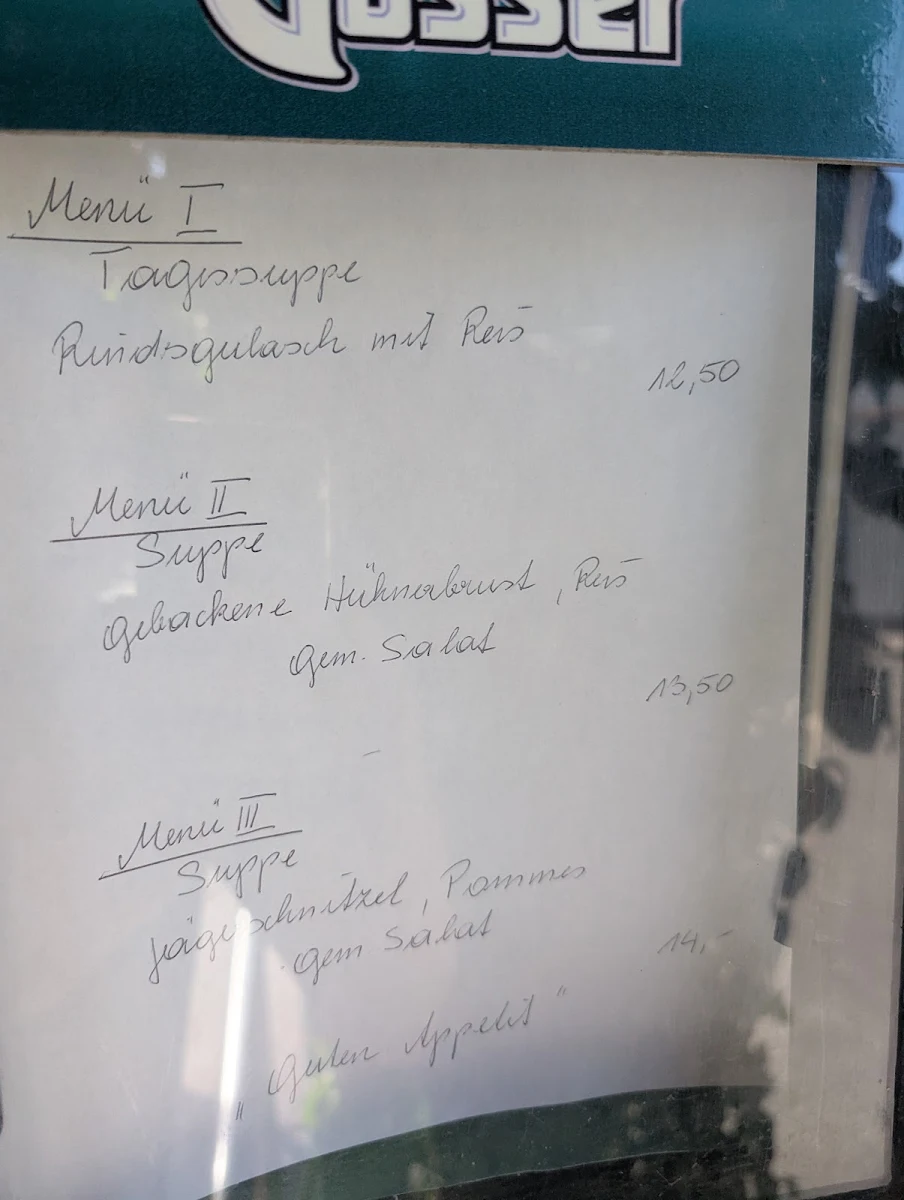 Gösser
Menü I
Tagessuppe
Rindsgulasch mit Reis
12,50
Menü II
Suppe
gebackene Hühnerbrust, Reis
gem. Salat
13,50
Menü III
Suppe
Jägerschnitzel, Pommes
gem Salat
14,-
„Guten Appetit"